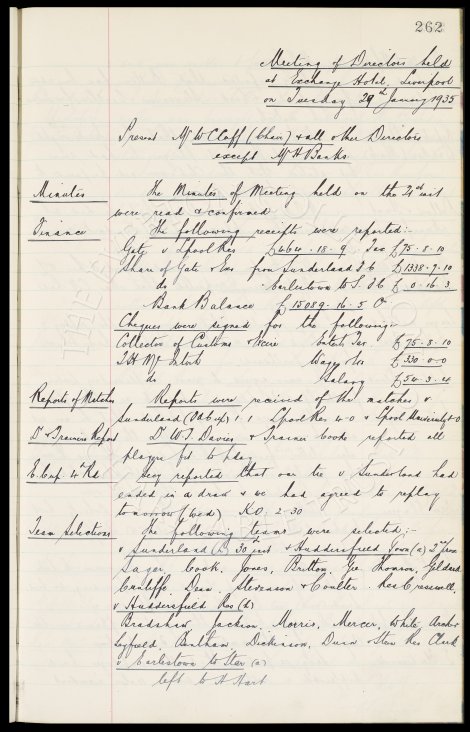 262
Meeting of Directors held
at Exchange Hotel, Liverpool
on Tuesday 29th January 1935
Present Mr W Cuff (Chair) & all other Directors
except Mr H Banks
Minutes The Minutes of Meeting held on the inst
were read & confirmed
Finance The following receipts were reported:-
Gate v Lpool Res £464-18-9 Tax £75-8-10
Share of Gate & from Sunderland F C £1338-7-10
do Earlestown £0-16-3
Bank Balance £15089-16-5
Cheques were signed for the following:-
Collector of Customs & Excise Entert Tax £75-8-10
Wages £330-0-0
do Salary £54-3-4
Reports of Matches Reports were received of the matches v
Sunderland 1-1 Lpool Res 4-0 & Lpool
Dr & Trainers Report Dr W.J. Davies & Trainer Cooke reported all
players fit to play
E. Cup 4th Rd Secy reported that our tie v Sunderland had
ended in a draw & we had agreed to replay
tomorrow (Wed) K.O. 2-30
Team Selections The following teams were selected:-
v Sunderland 30th inst & Huddersfield Town (a) 2nd
Sagar, Cook, Jones, Britton, Gee Thomson, Geldard
Cunliffe, Dean, Stevenson & Coulter. Res Cresswell
v Huddersfield Res (h)
Bradshaw, Jackson, Morris, Mercer, White Archer
Leyfield, Bentham, Dickinson, Dunn & Res Clark
v Earlestown (a)
left to H Hart